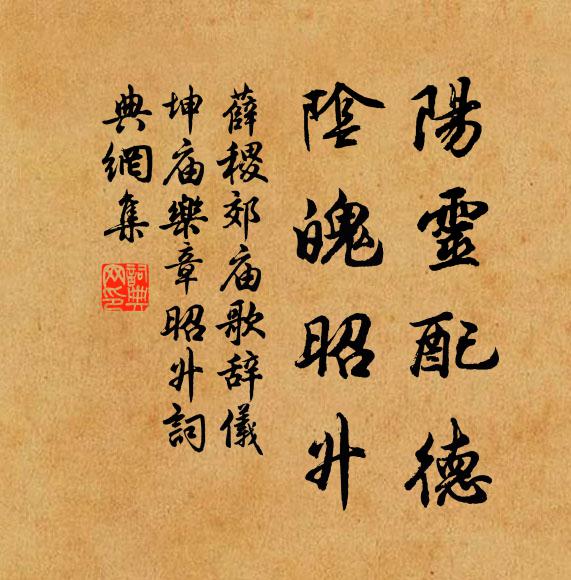 陽靈配德
陰魄昭升
薛稷郊庙歌辞儀
坤庙樂章昭升詞
典網集
詞典网印